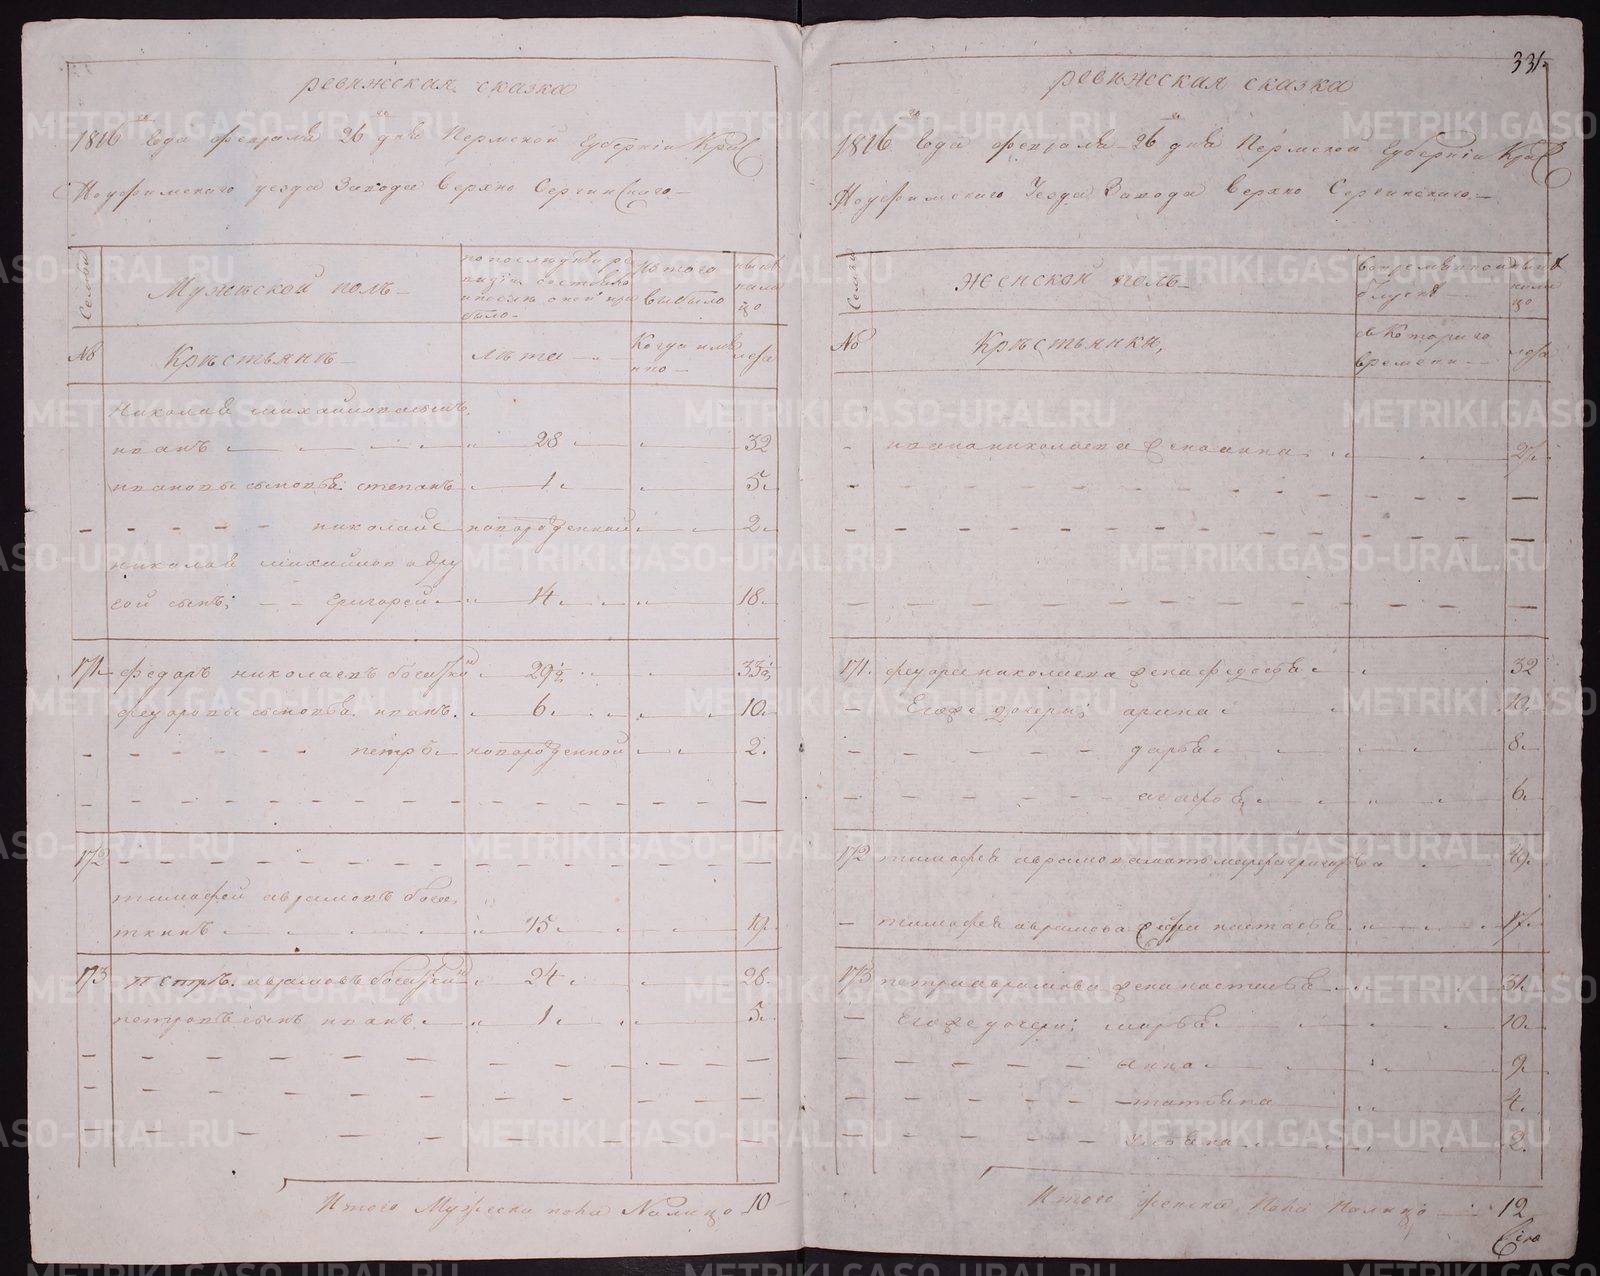 ревижская сказка
1816 Года февраля 26 дня Пермской Губерніи Крас
Ноуфимскаго уезда Завода Верхно Сергинскаго
Семьи
Мужеской полъ
Изтого выбыло
ныне налицо
№
Крестьяне
лета
Когда имянно
лета
Николая михайлова сынъ
иванъ 28 32
ивановы сыновья степанъ 1 5
николай новорожденной 2
николая михайлова дру
гой сынъ; григорей 14 18
171 федоръ николаевъ 29 1/2 33 1/2
федоровы сыновья иванъ 6 10
петръ новорожденной 2
172
тимофей аврамовъ бога
ткинъ 15 19
173 петръ аврамовъ 24 28
петровъ сынъ иванъ 1 5
Итого Мужеска пола Налицо 10
331
ревижская сказка
1816 Года февраля 26 дня Пермской Губерніи Крас
Ноуфимскаго Уезда Завода Верхно Сергинскаго
Семьи
женской полъ
№
Крестьянки,
с Котораго времени
лета
ивана николаева жена анна 27
171 федора николаева жена федосья 32
Егоже дочери; арина 10
дарья 8
агафья 6
172 тимофея аврамова мать 49
тимофея аврамова настасья 17
173 петра аврамова жена настасья 31
Егоже дочери; марья 10
анна 9
татьяна 4
ульяна 2
Итого женска пола Налицо 12
METRIKI.GASO-URAL.RU